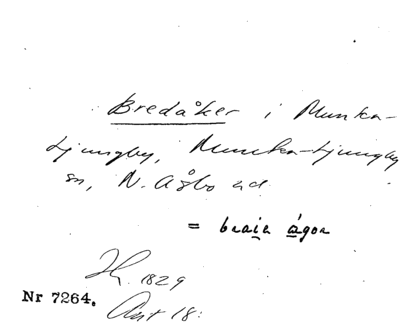 Bredåker i Munka-
Ljungby, Munka-Ljungby
sn, N. Åsbo hd
= braia ágor
1829
Nr 7264. Ant 18: